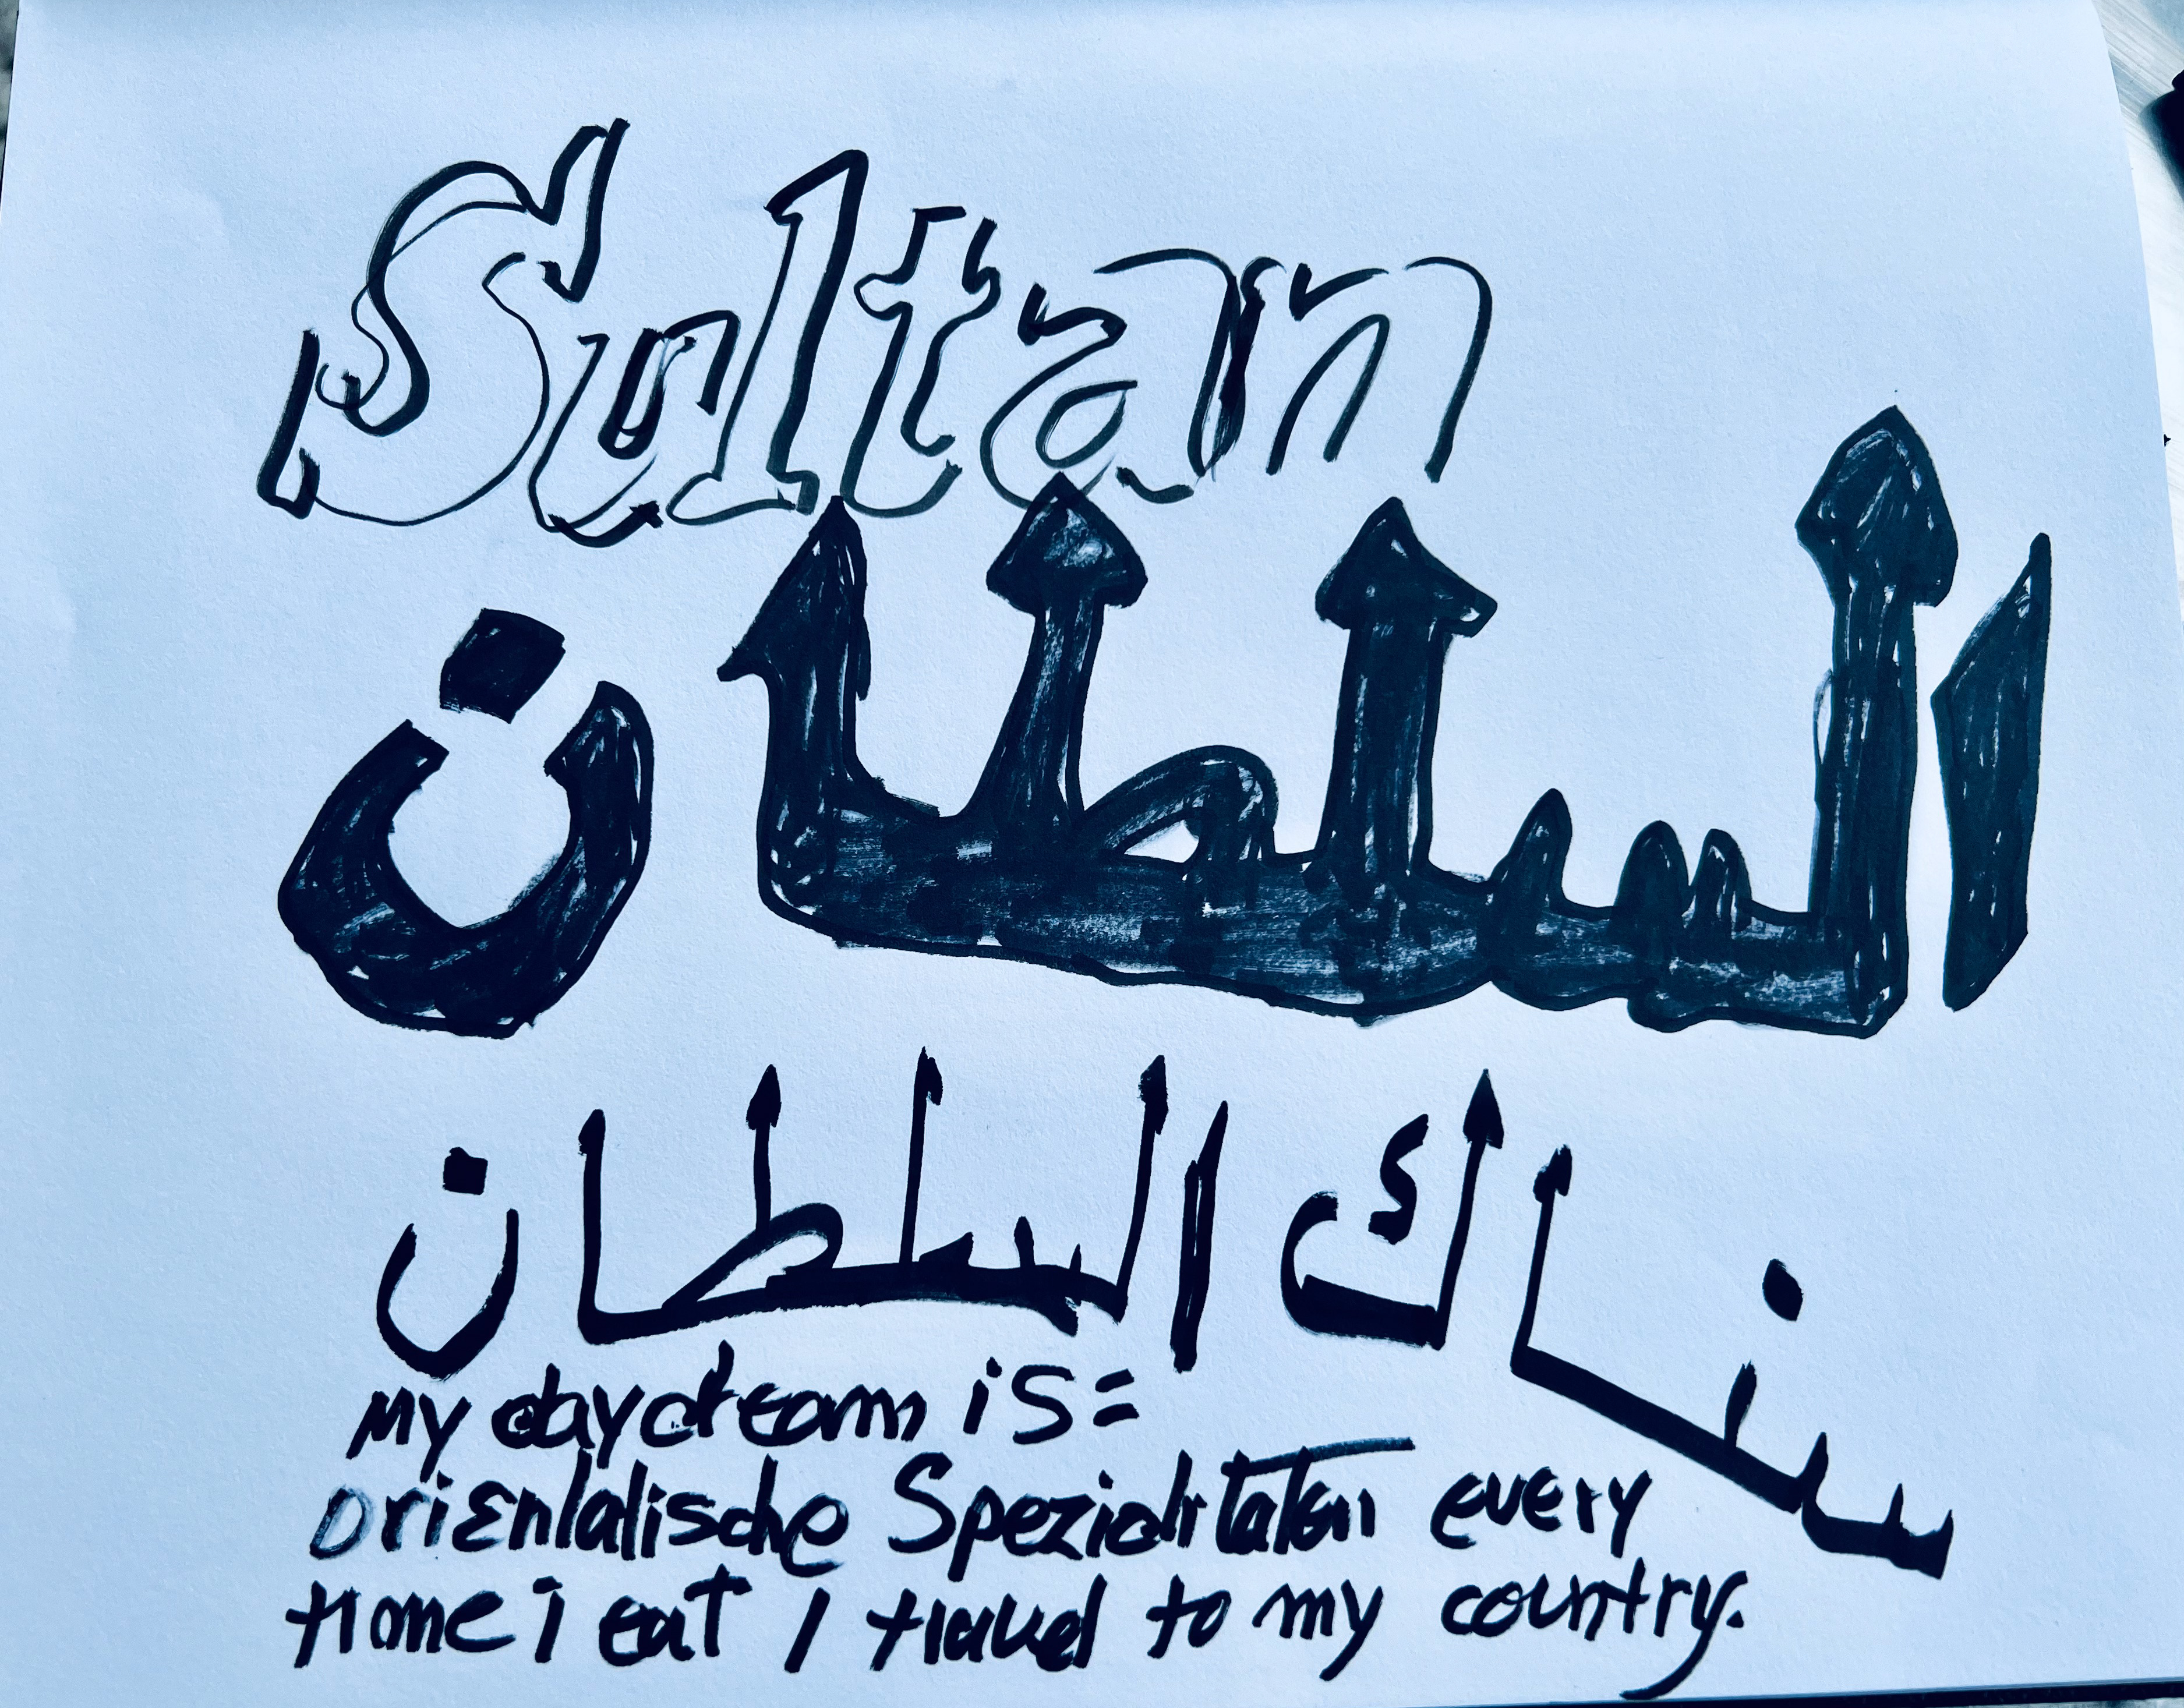 Sultan
السلطان
سناك السلطان
My daydream is=
orientalische Spezialitäten every
time i eat I travel to my country.